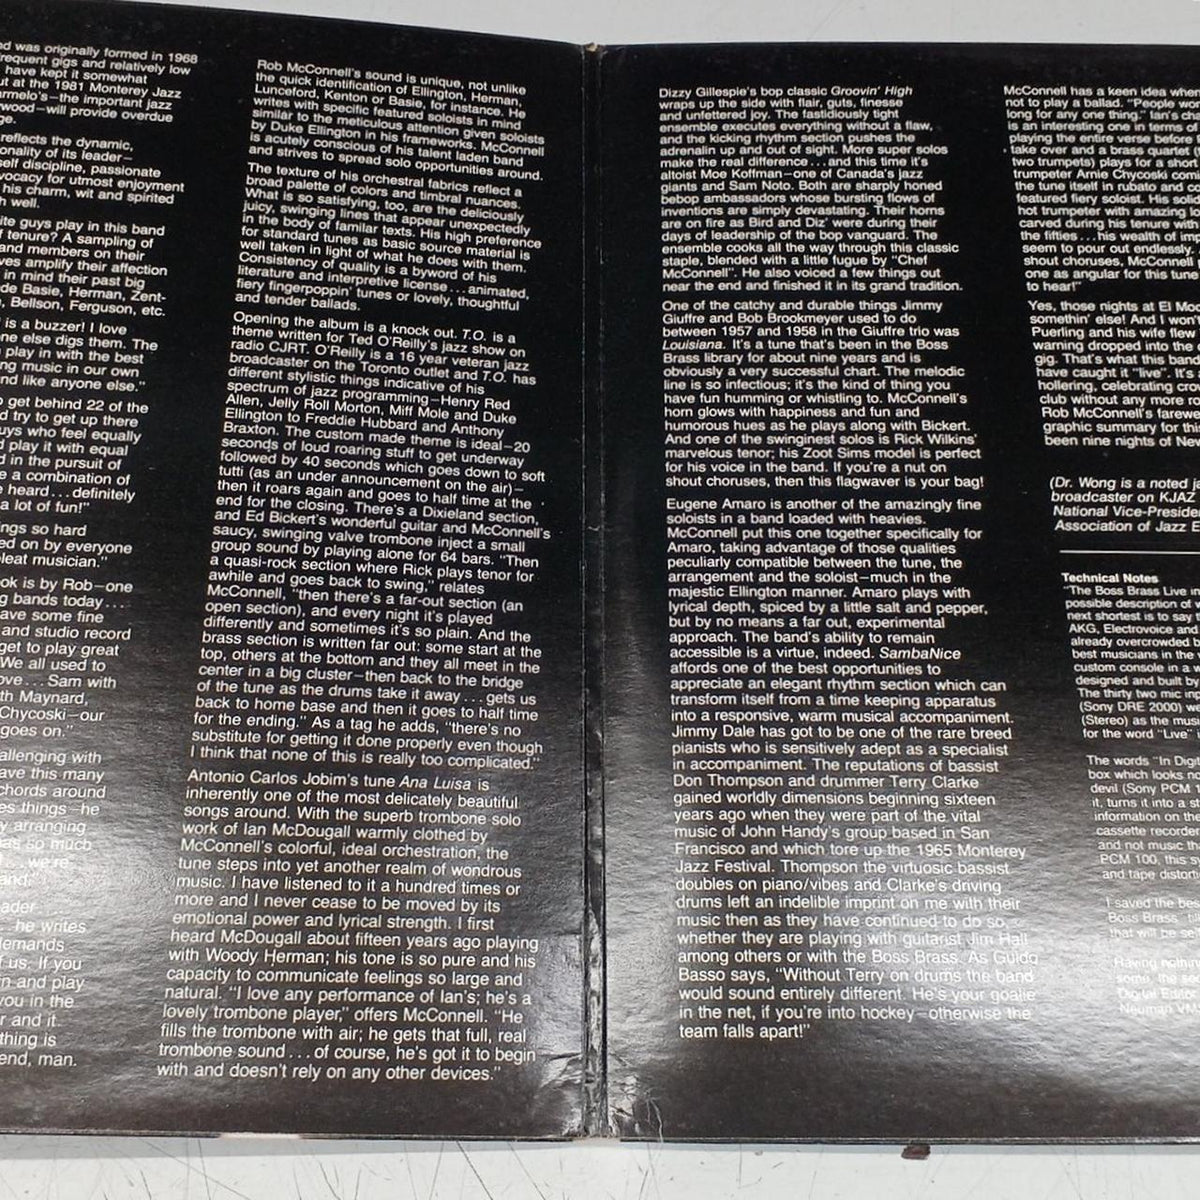 nd was originally formed in 1968
requent gigs and relatively low
have kept it somewhat
ut at the 1981 Monterey Jazz
armelo's—the important jazz
wood—will provide overdue
ge.
reflects the dynamic,
onality of its leader—
self discipline, passionate
vocacy for utmost enjoyment
his charm, wit and spirited
h well.
ite guys play in this band
f tenure? A sampling of
and members on their
ves amplify their affection
in mind their past big
de Basie, Herman, Zent-
, Bellson, Ferguson, etc.
is a buzzer! I love
ne else digs them. The
play in with the best
ng music in our own
nd like anyone else."
o get behind 22 of the
d try to get up there
uys who feel equally
d play it with equal
d in the pursuit of
e a combination of
e heard...definitely
a lot of fun!"
ings so hard
ed on by everyone
pleat musician."
ok is by Rob—one
g bands today...
ave some fine
and studio record
get to play great
We all used to
ove...Sam with
th Maynard,
Chycoski—our
goes on."
allenging with
ave this many
chords around
es things—he
y arranging
as so much
...we're
and."
ader
he writes
demands
f us. If you
n and play
you in the
r and it
thing is
end, man.
Rob McConnell's sound is unique, not unlike
the quick identification of Ellington, Herman,
Lunceford, Kenton or Basie, for instance. He
writes with specific featured soloists in mind
similar to the meticulous attention given soloists
by Duke Ellington in his frameworks. McConnell
is acutely conscious of his talent laden band
and strives to spread solo opportunities around.
The texture of his orchestral fabrics reflect a
broad palette of colors and timbral nuances.
What is so satisfying, too, are the deliciously
juicy, swinging lines that appear unexpectedly
in the body of familar texts. His high preference
for standard tunes as basic source material is
well taken in light of what he does with them.
Consistency of quality is a byword of his
literature and interpretive license...animated,
fiery fingerpoppin' tunes or lovely, thoughtful
and tender ballads.
Opening the album is a knock out. T.O. is a
theme written for Ted O'Reilly's jazz show on
radio CJRT. O'Reilly is a 16 year veteran jazz
broadcaster on the Toronto outlet and T.O. has
different stylistic things indicative of his
spectrum of jazz programming—Henry Red
Allen, Jelly Roll Morton, Miff Mole and Duke
Ellington to Freddie Hubbard and Anthony
Braxton. The custom made theme is ideal—20
seconds of loud roaring stuff to get underway
followed by 40 seconds which goes down to soft
tutti (as an under announcement on the air)—
then it roars again and goes to half time at the
end for the closing. There's a Dixieland section,
and Ed Bickert's wonderful guitar and McConnell's
saucy, swinging valve trombone inject a small
group sound by playing alone for 64 bars. "Then
a quasi-rock section where Rick plays tenor for
awhile and goes back to swing," relates
McConnell, "then there's a far-out section (an
open section), and every night it's played
differently and sometimes it's so plain. And the
brass section is written far out: some start at the
top, others at the bottom and they all meet in the
center in a big cluster—then back to the bridge
of the tune as the drums take it away...gets us
back to home base and then it goes to half time
for the ending." As a tag he adds, "there's no
substitute for getting it done properly even though
I think that none of this is really too complicated."
Antonio Carlos Jobim's tune Ana Luisa is
inherently one of the most delicately beautiful
songs around. With the superb trombone solo
work of Ian McDougall warmly clothed by
McConnell's colorful, ideal orchestration, the
tune steps into yet another realm of wondrous
music. I have listened to it a hundred times or
more and I never cease to be moved by its
emotional power and lyrical strength. I first
heard McDougall about fifteen years ago playing
with Woody Herman; his tone is so pure and his
capacity to communicate feelings so large and
natural. "I love any performance of Ian's; he's a
lovely trombone player," offers McConnell. "He
fills the trombone with air; he gets that full, real
trombone sound...of course, he's got it to begin
with and doesn't rely on any other devices."
Dizzy Gillespie's bop classic Groovin' High
wraps up the side with flair, guts, finesse
and unfettered joy. The fastidiously tight
ensemble executes everything without a flaw,
and the kicking rhythm section pushes the
adrenalin up and out of sight. More super solos
make the real difference...and this time it's
altoist Moe Koffman—one of Canada's jazz
giants and Sam Noto. Both are sharply honed
bebop ambassadors whose bursting flows of
inventions are simply devastating. Their horns
are on fire as Bird and Diz' were during their
days of leadership of the bop vanguard. The
ensemble cooks all the way through this classic
staple, blended with a little fugue by "Chef
McConnell". He also voiced a few things out
near the end and finished it in grand tradition.
One of the catchy and durable things Jimmy
Giuffre and Bob Brookmeyer used to do
between 1957 and 1958 in the Giuffre trio was
Louisiana. It's a tune that's been in the Boss
Brass library for about nine years and is
obviously a very successful chart. The melodic
line is so infectious; it's the kind of thing you
have fun humming or whistling to. McConnell's
horn glows with happiness and fun and
humorous hues as he plays along with Bickert.
And one of the swinginest solos is Rick Wilkins'
marvelous tenor; his Zoot Sims model is perfect
for his voice in the band. If you're a nut on
shout choruses, then this flagwaver is your bag!
Eugene Amaro is another of the amazingly fine
soloists in a band loaded with heavies.
McConnell put this one together specifically for
Amaro, taking advantage of those qualities
peculiarly compatible between the tune, the
arrangement and the soloist—much in the
majestic Ellington manner. Amaro plays with
lyrical depth, spiced by a little salt and pepper,
but by no means a far out, experimental
approach. The band's ability to remain
accessible is a virtue, indeed. SambaNice
affords one of the best opportunities to
appreciate an elegant rhythm section which can
transform itself from a time keeping apparatus
into a responsive, warm musical accompaniment.
Jimmy Dale has got to be one of the rare breed
pianists who is sensitively adept as a specialist
in accompaniment. The reputations of bassist
Don Thompson and drummer Terry Clarke
gained worldly dimensions beginning sixteen
years ago when they were part of the vital
music of John Handy's group based in San
Francisco and which tore up the 1965 Monterey
Jazz Festival. Thompson the virtuosic bassist
doubles on piano/vibes and Clarke's driving
drums left an indelible imprint on me with their
music then as they have continued to do so,
whether they are playing with guitarist Jim Hall
among others or with the Boss Brass. As Guido
Basso says, "Without Terry on drums the band
would sound entirely different. He's your goalie
in the net, if you're into hockey—otherwise the
team falls apart!"
McConnell has a keen idea when
not to play a ballad. "People wo
long for any one thing." Ian's cha
is an interesting one in terms o
playing the entire verse before
take over and a brass quartet (
two trumpets) plays for a short
trumpeter Arnie Chycoski com
the tune itself in rubato and c
featured fiery soloist. His solid
hot trumpeter with amazing
carved during his tenure with
the fifties...his wealth of im
seem to pour out endlessly.
shout choruses, McConnell p
one as angular for this tune
to hear!"
Yes, those nights at El Mo
somethin' else! And I won't
Puerling and his wife flew
warning dropped into the c
gig. That's what this band
have caught it "live". It's a
hollering, celebrating cro
club without any more ro
Rob McConnell's farew
graphic summary for this
been nine nights of Ne
(Dr. Wong is a noted ja
broadcaster on KJAZ
National Vice-Preside
Association of Jazz E
Technical Notes
"The Boss Brass Live i
possible description of
next shortest is to say t
AKG, Electrovoice and
already overcrowded b
best musicians in the w
custom console in a v
designed and built by
The thirty two mic in
(Sony DRE 2000) w
(Stereo) as the mus
for the word "Live" i
The words "In Digit
box which looks n
devil (Sony PCM 1
it, turns it into a s
information on th
cassette recorde
and not music tha
PCM 100, this s
and tape distorti
I saved the bes
Boss Brass, t
that will be se
Having nothin
some, the se
Digital Edito
Neuman VM